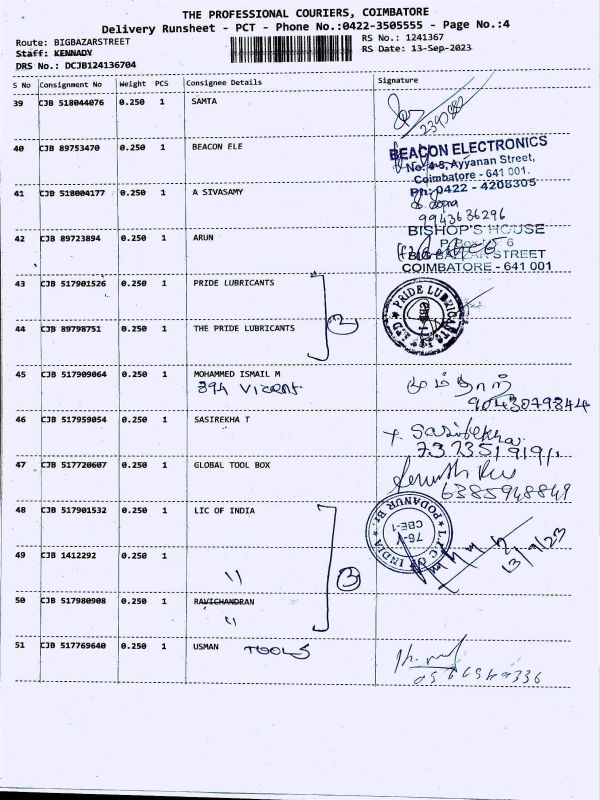 THE PROFESSIONAL COURIERS, COIMBATORE
Delivery Runsheet - PCT - Phone No.:0422-3505555 - Page No.:4
Route: BIGBAZARSTREET
RS No.: 1241367
Staff: KENNADY
RS Date: 13-Sep-2023
DRS No.: DCJB124136704
S No Consignment No Weight PCS Consignee Details Signature
39 CJB 518044076 0.250 1 SAMTA
40 CJB 89753470 0.250 1 BEACON ELE
BEACON ELECTRONICS
No. 4-5, Ayyanan Street,
Coimbatore - 641 001.
Ph: 0422 - 4208305
41 CJB 518004177 0.250 1 A SIVASAMY
9943636296
42 CJB 89723894 0.250 1 ARUN
BISHOP'S HOUSE
STREET
COIMBATORE - 641 001
43 CJB 517901526 0.250 1 PRIDE LUBRICANTS
PRIDE LUBRICANTS
2
44 CJB 89798751 0.250 1 THE PRIDE LUBRICANTS
45 CJB 517909064 0.250 1 MOHAMMED ISMAIL M
46 CJB 517959054 0.250 1 SASIREKHA T
Sasirekha
47 CJB 517720607 0.250 1 GLOBAL TOOL BOX
6385948849
48 CJB 517901532 0.250 1 LIC OF INDIA
L.I.C. OF INDIA
PODANUR Br.
CBE-1
13/9/23
49 CJB 1412292 0.250 1
"
3
50 CJB 517980908 0.250 1 RAVICHANDRAN
"
51 CJB 517769640 0.250 1 USMAN TOOLS